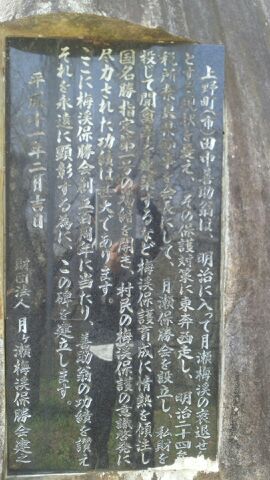 上野町(市)田中善助翁は、明治に入って月瀬梅渓の衰退せ
とする現状を憂え、その保護対策に東奔西走し、明治二十四年
月瀬保勝会を設立し、私財を
投じて開するなど梅渓保護育成に情熱を傾注し
国名勝指定第一号の を開き、村民の梅渓保護の意識啓発に
尽力された功績は甚大であります。
ここに梅渓保勝会創立百周年に当たり、善助翁の功績を讃え
それを永遠に顕彰する為に、この碑を建立します。
平成十一年二月吉日
財団法人 月ヶ瀬梅渓保勝会建之